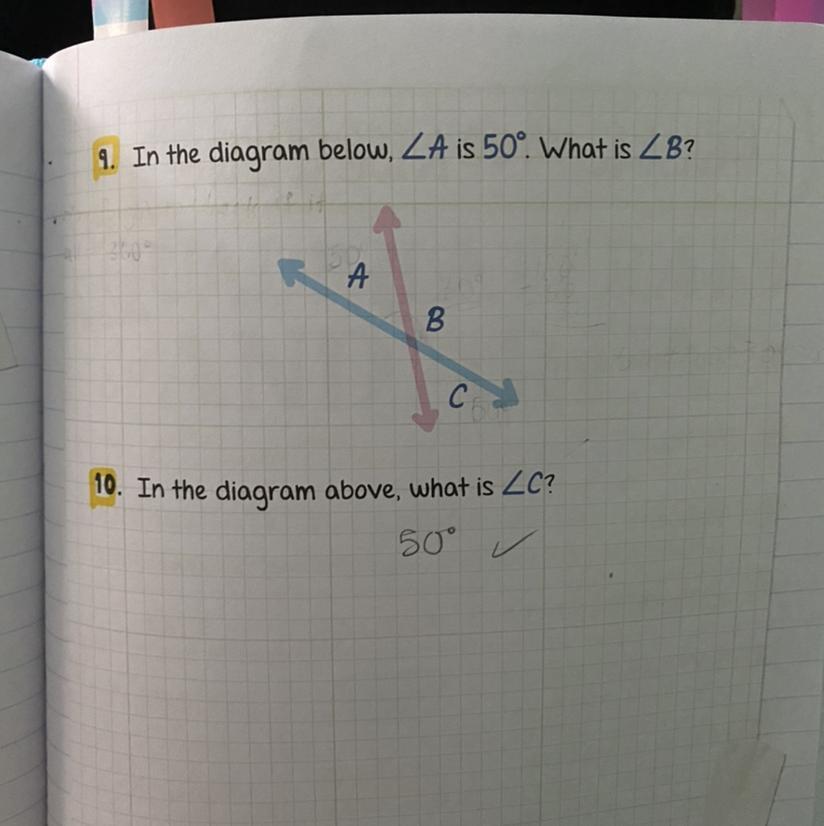 9. In the diagram below, ∠A is 50°. What is ∠B?
A
B
C
10. In the diagram above, what is ∠C?
50° ✓